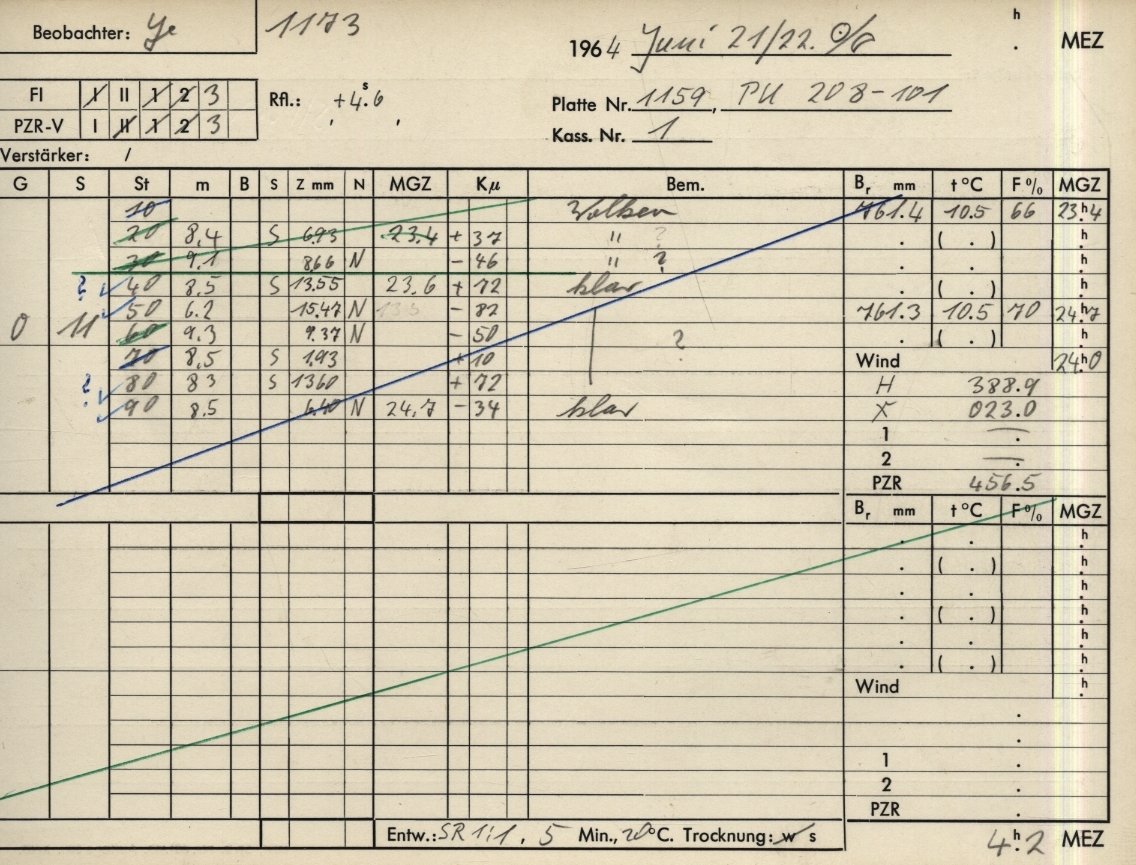 Beobachter: Ye 1173 h
1964 Juni 21/22. . MEZ
FI I II 1 2 3 Rfl.: +4.ˢ6 Platte Nr. 1159, PU 208-101
PZR-V I II 1 2 3 Kass. Nr. 1
Verstärker: /
G S St m B S Z mm N MGZ Kμ Bem. Bᵣ mm t °C F % MGZ
10 Wolken 761.4 10.5 66 23.ʰ4
20 8,4 S 6.93 23.4 + 37 " ? . ( . ) .ʰ
30 9.1 8.66 N - 46 " ? . . .ʰ
? 40 8.5 S 13.55 23.6 + 72 klar . ( . ) .ʰ
50 6.2 15.47 N - 82 761.3 10.5 70 24.ʰ7
0 11 60 9.3 9.37 N - 50 ? . ( . ) .ʰ
70 8,5 S 1.93 + 10 Wind 24.ʰ0
? 80 83 S 1360 + 72 H 388.9
90 8.5 6.40 N 24.7 - 34 klar X 023.0
1 — .
2 — .
PZR 456.5
Bᵣ mm t °C F % MGZ
. . .ʰ
. ( . ) .ʰ
. . .ʰ
. ( . ) .ʰ
. . .ʰ
. ( . ) .ʰ
Wind .ʰ
.
.
1 .
2 .
PZR .
Entw.: SR 1:1, 5 Min., 20°C. Trocknung: w s 4.ʰ2 MEZ